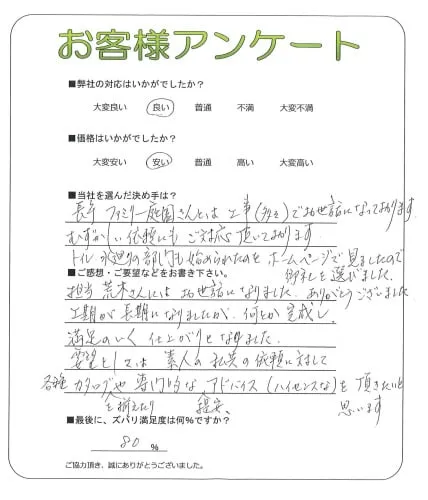 お客様アンケート
■弊社の対応はいかがでしたか？
大変良い 良い 普通 不満 大変不満
■価格はいかがでしたか？
大変安い 安い 普通 高い 大変高い
■当社を選んだ決め手は？
長年 ファミリー庭園さんとは 工事(多々)でお世話になっております
むずかしい依頼にも ご対応頂いております
トイレ 水廻りの部門も始められたのを ホームページで見ましたので
御社を選びました。
■ご感想・ご要望などをお書き下さい。
担当 荒木さんには お世話になりました。ありがとうございました
工期が長期になりましたが、何とか完成し、
満足のいく 仕上がりとなりました。
要望としては 素人の私共の依頼に対して
各種 カタログや 専門的な アドバイス(ハイセンスな)を 頂きたいと
を揃えたり 提案、 思います
■最後に、ズバリ満足度は何％ですか？
80 %
ご協力頂き、誠にありがとうございました。